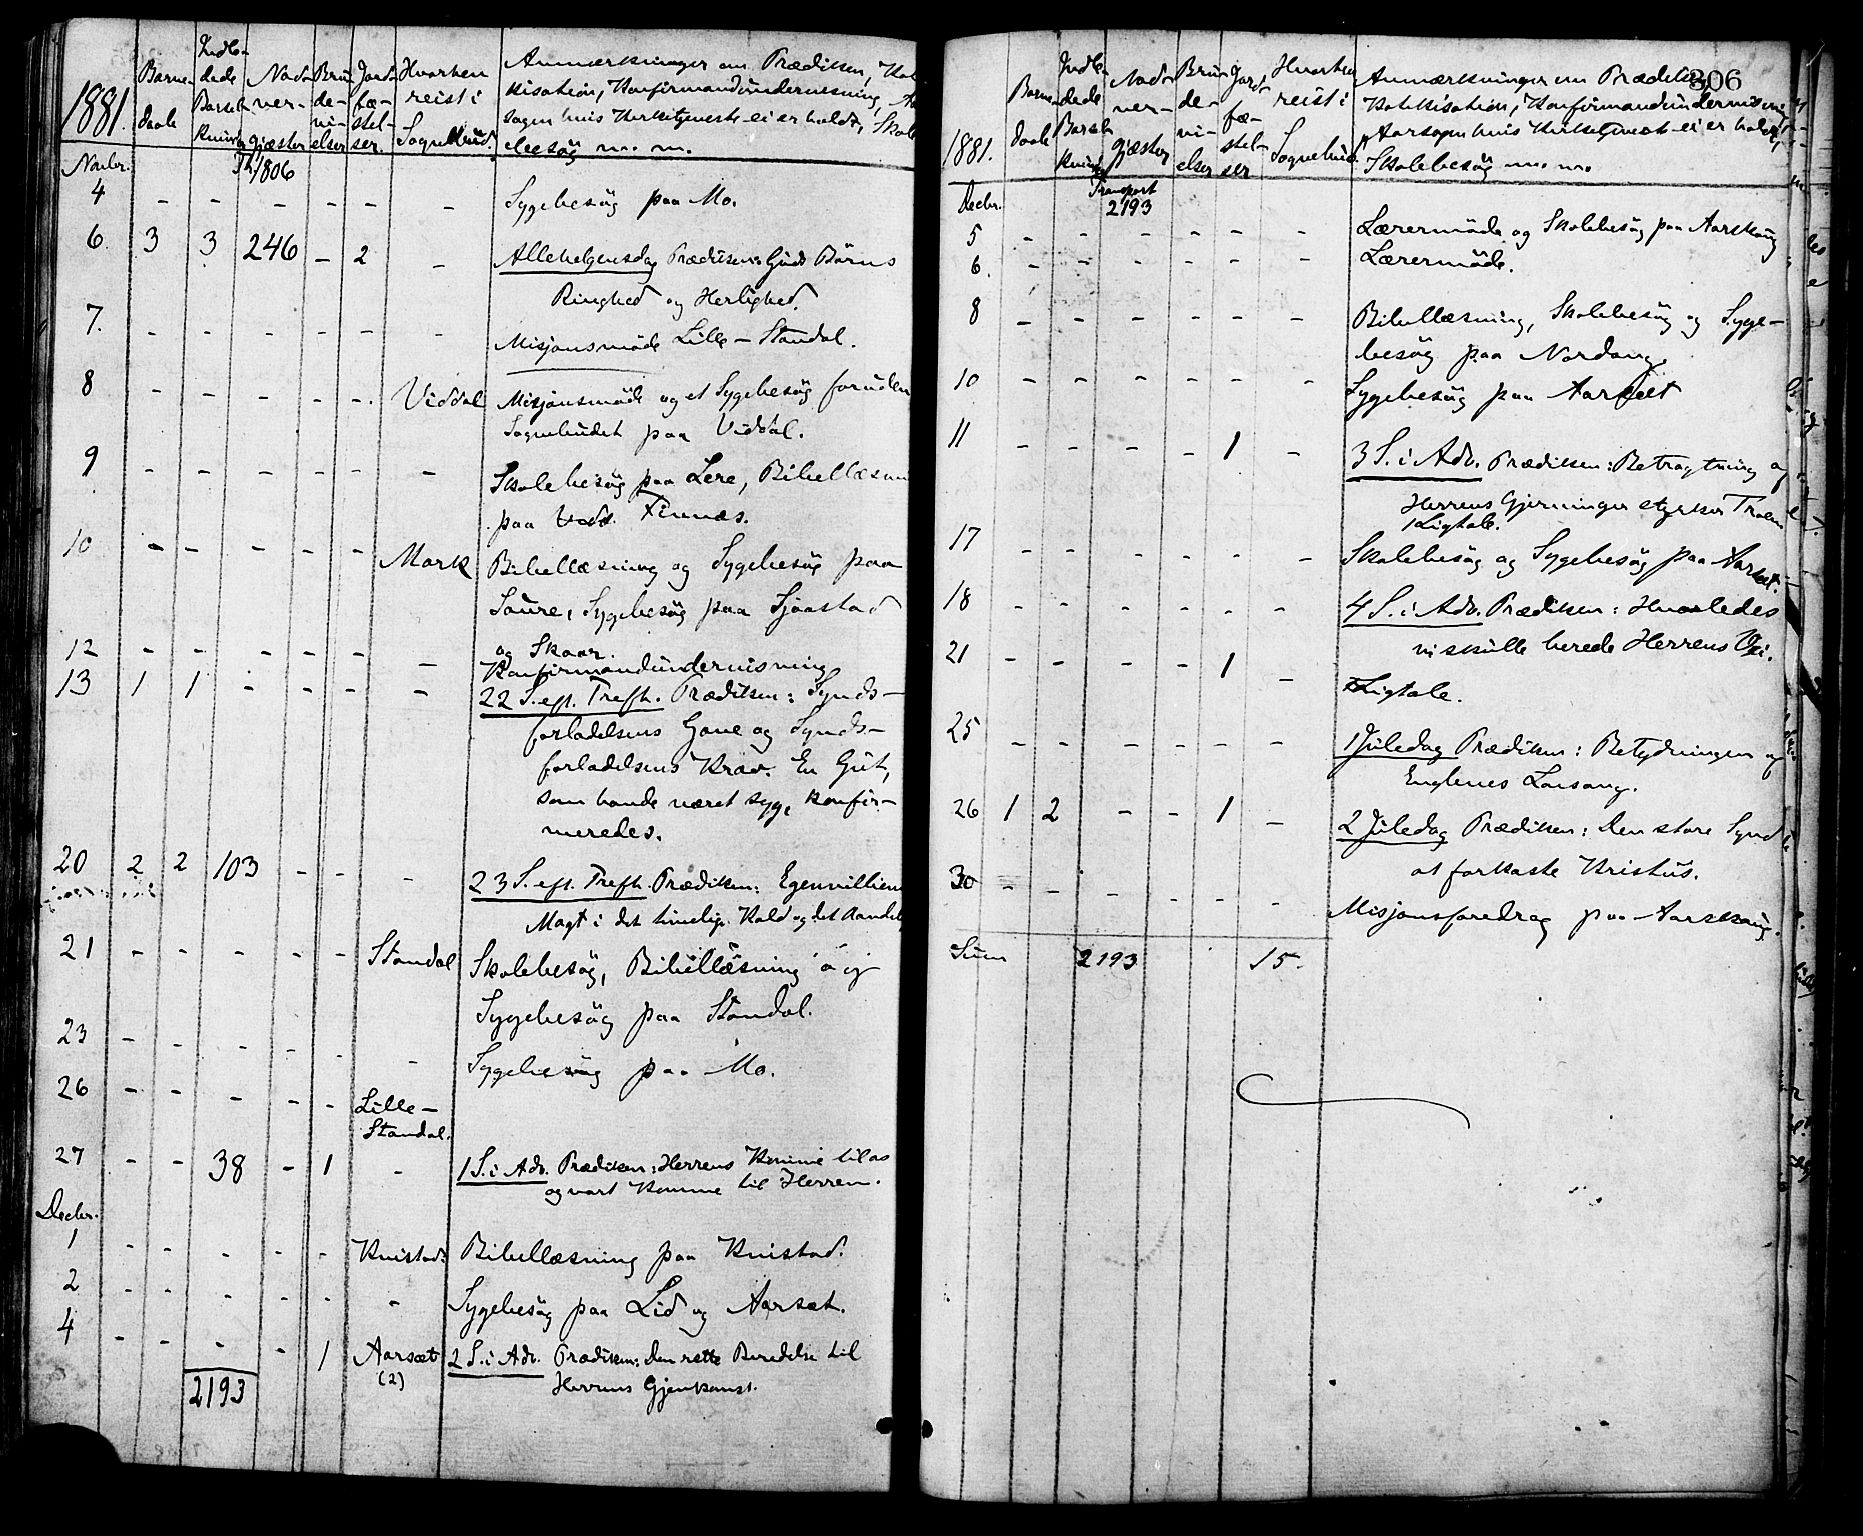 1881.
Barne-
daab
Indle-
dede
Barsel-
kvinder
Nad-
ver-
gjæster
Bru-
de-
vi-
elser
Jord-
fæ-
stel-
ser.
Hvorhen
reist i
Sognebud.
Anmærkninger om Prædiken, Kat
kisation, Konfirmandundervisning,
sagen hvis Kirketjeneste ei er holdt, Skole
besøg m. m.
Novbr. Tr. 1806
4 - - - - - - Sygebesøg paa Mo.
6. 3 3 246 - 2 - Allehelgensdag Prædiken: Guds Børns
Ringhed og Herlighed.
7. - - - - - - Misjonsmøde Lille-Standal.
8 - - - - - Viddal Misjonsmøde og et Sygebesøg foruden
Sognebudet paa Viddal.
9 - - - - - - Skolebesøg paa Lere, Bibellæsn
paa Finnes.
10 - - - - - Mork Bibellæsning og Sygebesøg paa
Saure, Sygebesøg paa Sjaastad
og Skaar.
12 - - - - - - Konfirmandundervisning
13 1 1 - - - - 22 S. eft. Trefh. Prædiken: Synds-
forladelsens Gave og Synds-
forladelsens Krav. En Gut,
som havde været syg, konfir-
meredes.
20 2 2 103 - - - 23 S. eft. Trefh. Prædiken: Egenvilliens
Magt i det timelige Kald og det aandel
21 - - - - - Standal Skolebesøg, Bibellæsning og
Sygebesøg paa Standal.
23 - - - - - - Sygebesøg paa Mo.
26 - - - - - Lille-
Standal.
27 - - 38 - 1 - 1 S. i Adv. Prædiken: Herrens Komme til os
og vort Komme til Herren.
Decbr.
1 - - - - - Kvistad. Bibellæsning paa Kvistad.
2 - - - - - - Sygebesøg paa Lid og Aarsæt.
4 - - - - 1 Aarsæt 2 S. i Adv. Prædiken: Den rette Beredelse til
(2) Herrens Gjenkomst.
2193
306
1881.
Barne-
daab
Indle-
dede
Barsel-
kvinder
Nad-
ver-
gjæster
Bru-
de-
vi-
elser
Jord-
fæ-
stel-
ser
Hvorhen
reist i
Sognebud
Anmærkninger om Prædiken
Katekisation, Konfirmandundervisning
Aarsagen hvis Kirketjeneste ei er holdt,
Skolebesøg m. m.
Decbr. Transport
2193
5 - - - - - - Lærermøde og Skolebesøg paa Aarskoug
6. - - - - - - Lærermøde.
8 - - - - - - Bibellæsning, Skolebesøg og Syge-
besøg paa Nordang.
10 - - - - - - Sygebesøg paa Aarsæt
11 - - - - 1 - 3 S. i Adv. Prædiken: Betragtning af
Herrens Gjerninger styrker Troen
1 Ligtale.
17 - - - - - - Skolebesøg og Sygebesøg paa Aarsæt.
18 - - - - - - 4 S. i Adv. Prædiken: Hvorledes
vi skulle berede Herrens Vei.
21 - - - - 1 - Ligtale.
25 - - - - - - 1 Juledag Prædiken: Betydningen af
Englenes Lovsang.
26 1 2 - - 1 - 2 Juledag Prædiken: Den store Synd
at forkaste Kristus.
30 - - - - - - Misjonsforedrag paa Aarskoug.
Sum 2193 15.